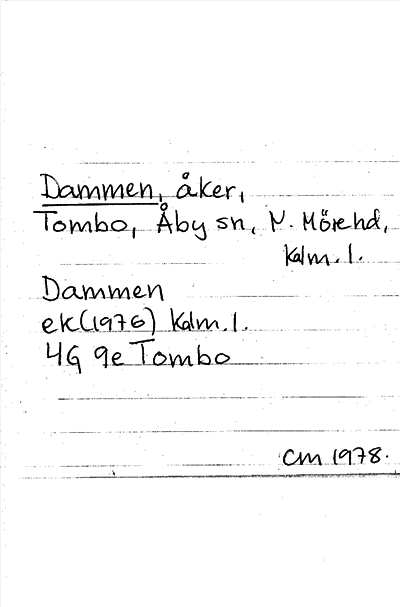 Dammen, åker,
Tombo, Åby sn, N. Möre hd,
Kalm. l.
Dammen
ek(1976) Kalm. l.
4G 9e Tombo
CM 1978.